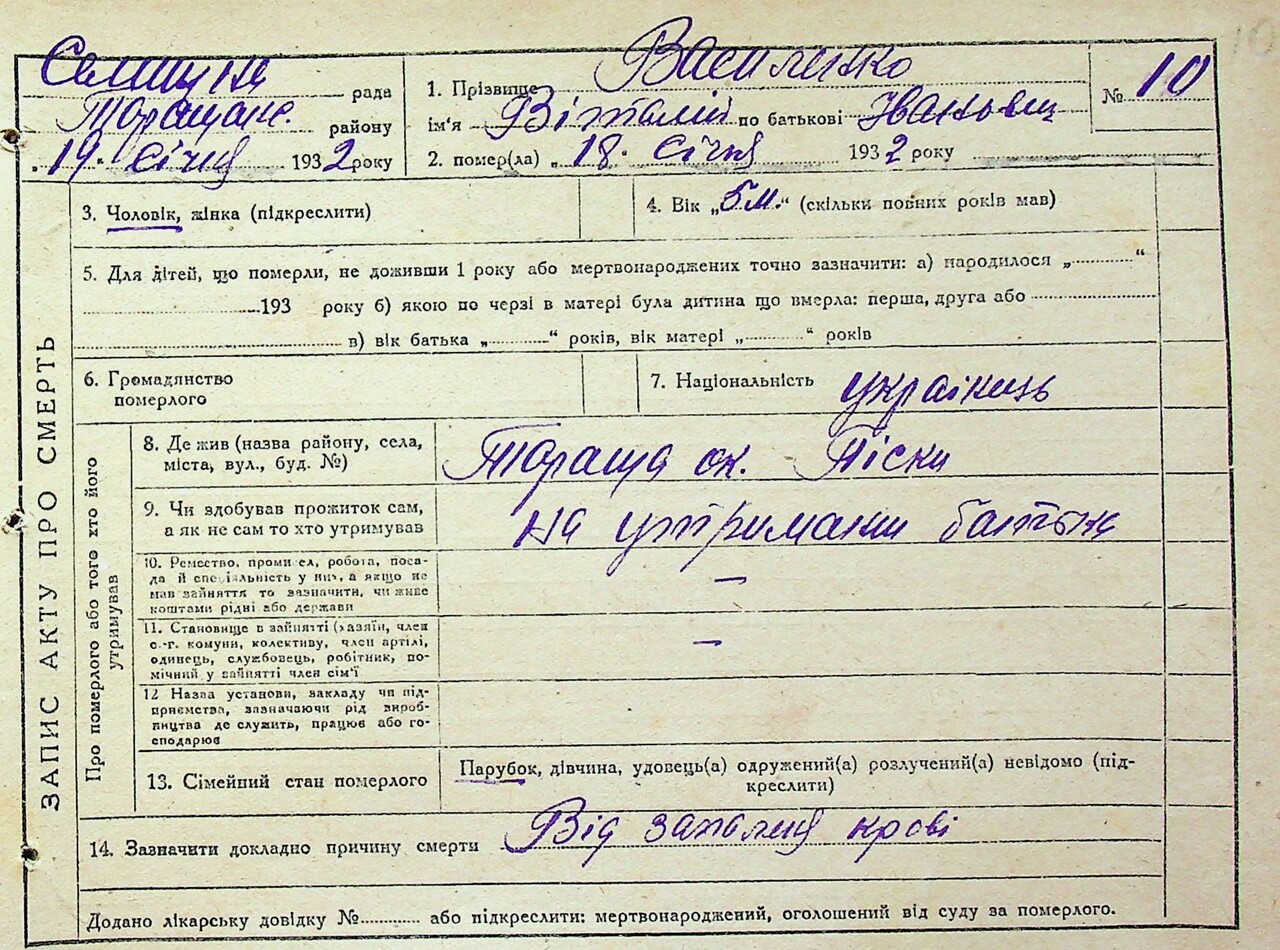 10
Селищна рада
Таращанс. району
„19“ січня 1932 року
1. Прізвище Василенко
ім'я Віталій по батькові Іванович
№ 10
2. помер(ла) „18“ січня 1932 року
3. Чоловік, жінка (підкреслити)
4. Вік „5 м.“ (скільки повних років мав)
5. Для дітей, що померли, не доживши 1 року або мертвонароджених точно зазначити: а) народилося „............“
193 року б) якою по черзі в матері була дитина що вмерла: перша, друга або
в) вік батька „............“ років, вік матері „............“ років
6. Громадянство
померлого
7. Національність українець
ЗАПИС АКТУ ПРО СМЕРТЬ
Про померлого або того хто його
утримував
8. Де жив (назва району, села,
міста, вул., буд. №)
Тараща ок. Піски
9. Чи здобував прожиток сам,
а як не сам то хто утримував
на утриманні батька
10. Ремество, промисел, робота, поса-
да й спеціяльність у них, а якщо не
мав зайняття то зазначити, чи живе
коштами рідні або держави
—
11. Становище в зайнятті (хазяїн, член
с.-г. комуни, колективу, член артілі,
одинець, службовець, робітник, по-
мічний у зайнятті член сім'ї
—
12 Назва установи, закладу чи під-
приємства, зазначаючи рід вироб-
ництва де служить, працює або го-
сподарює
13. Сімейний стан померлого
Парубок, дівчина, удовець(а) одружений(а) розлучений(а) невідомо (під-
креслити)
14. Зазначити докладно причину смерти Від запалення крові
Додано лікарську довідку №............ або підкреслити: мертвонароджений, оголошений від суду за померлого.